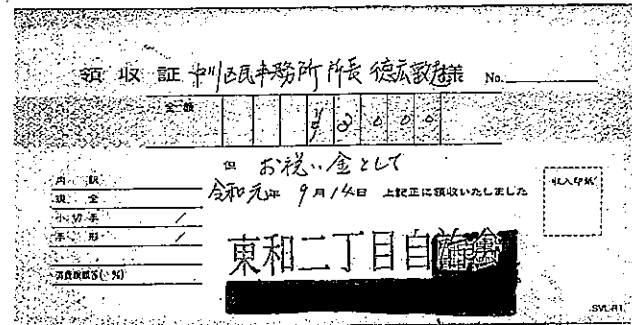 領収証 中川区民事務所 所長 徳広敦様 No.
金額 ¥8000
但 お祝い金として
令和元年 9月14日 上記正に領収いたしました
内訳
現金
小切手
手形
消費税額等( %)
収入印紙
東和二丁目自治会
SVL-R1